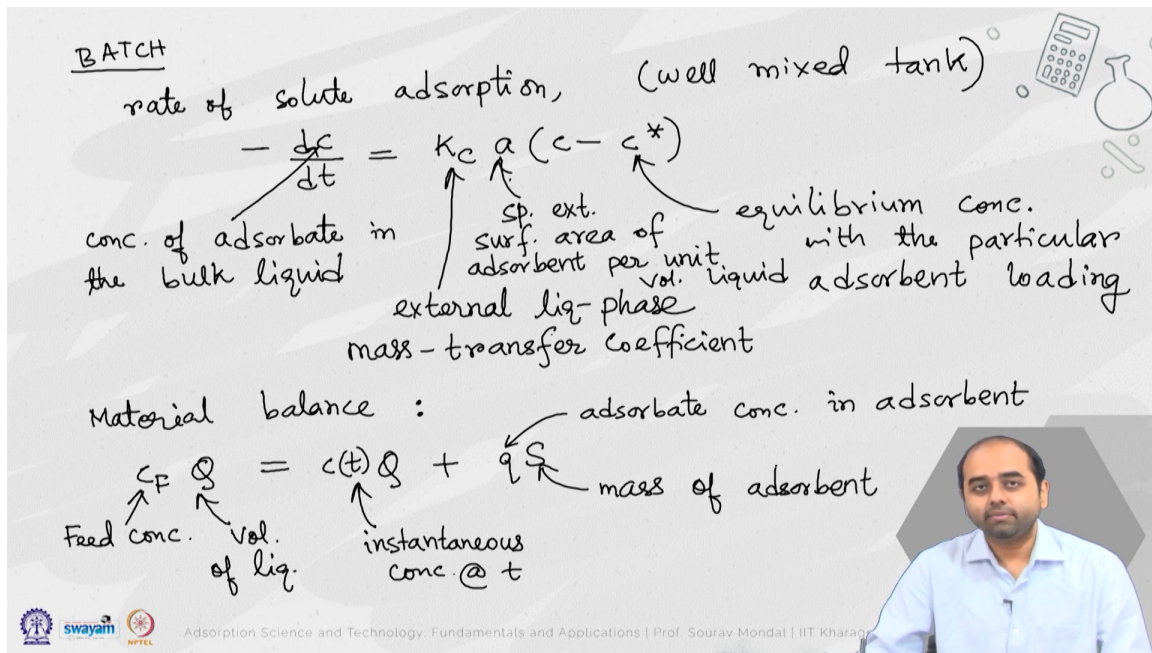 BATCH
rate of solute adsorption, (well mixed tank)
- dc/dt = Kc a (c - c*)
conc. of adsorbate in
the bulk liquid
sp. ext.
surf. area of
adsorbent per unit
vol. liquid
equilibrium conc.
with the particular
adsorbent loading
external liq-phase
mass-transfer coefficient
Material balance :
adsorbate conc. in adsorbent
c_F Q = c(t) Q + q S
mass of adsorbent
Feed conc.
vol.
of liq.
instantaneous
conc. @ t
swayam
NPTEL
Adsorption Science and Technology: Fundamentals and Applications | Prof. Sourav Mondal | IIT Kharag